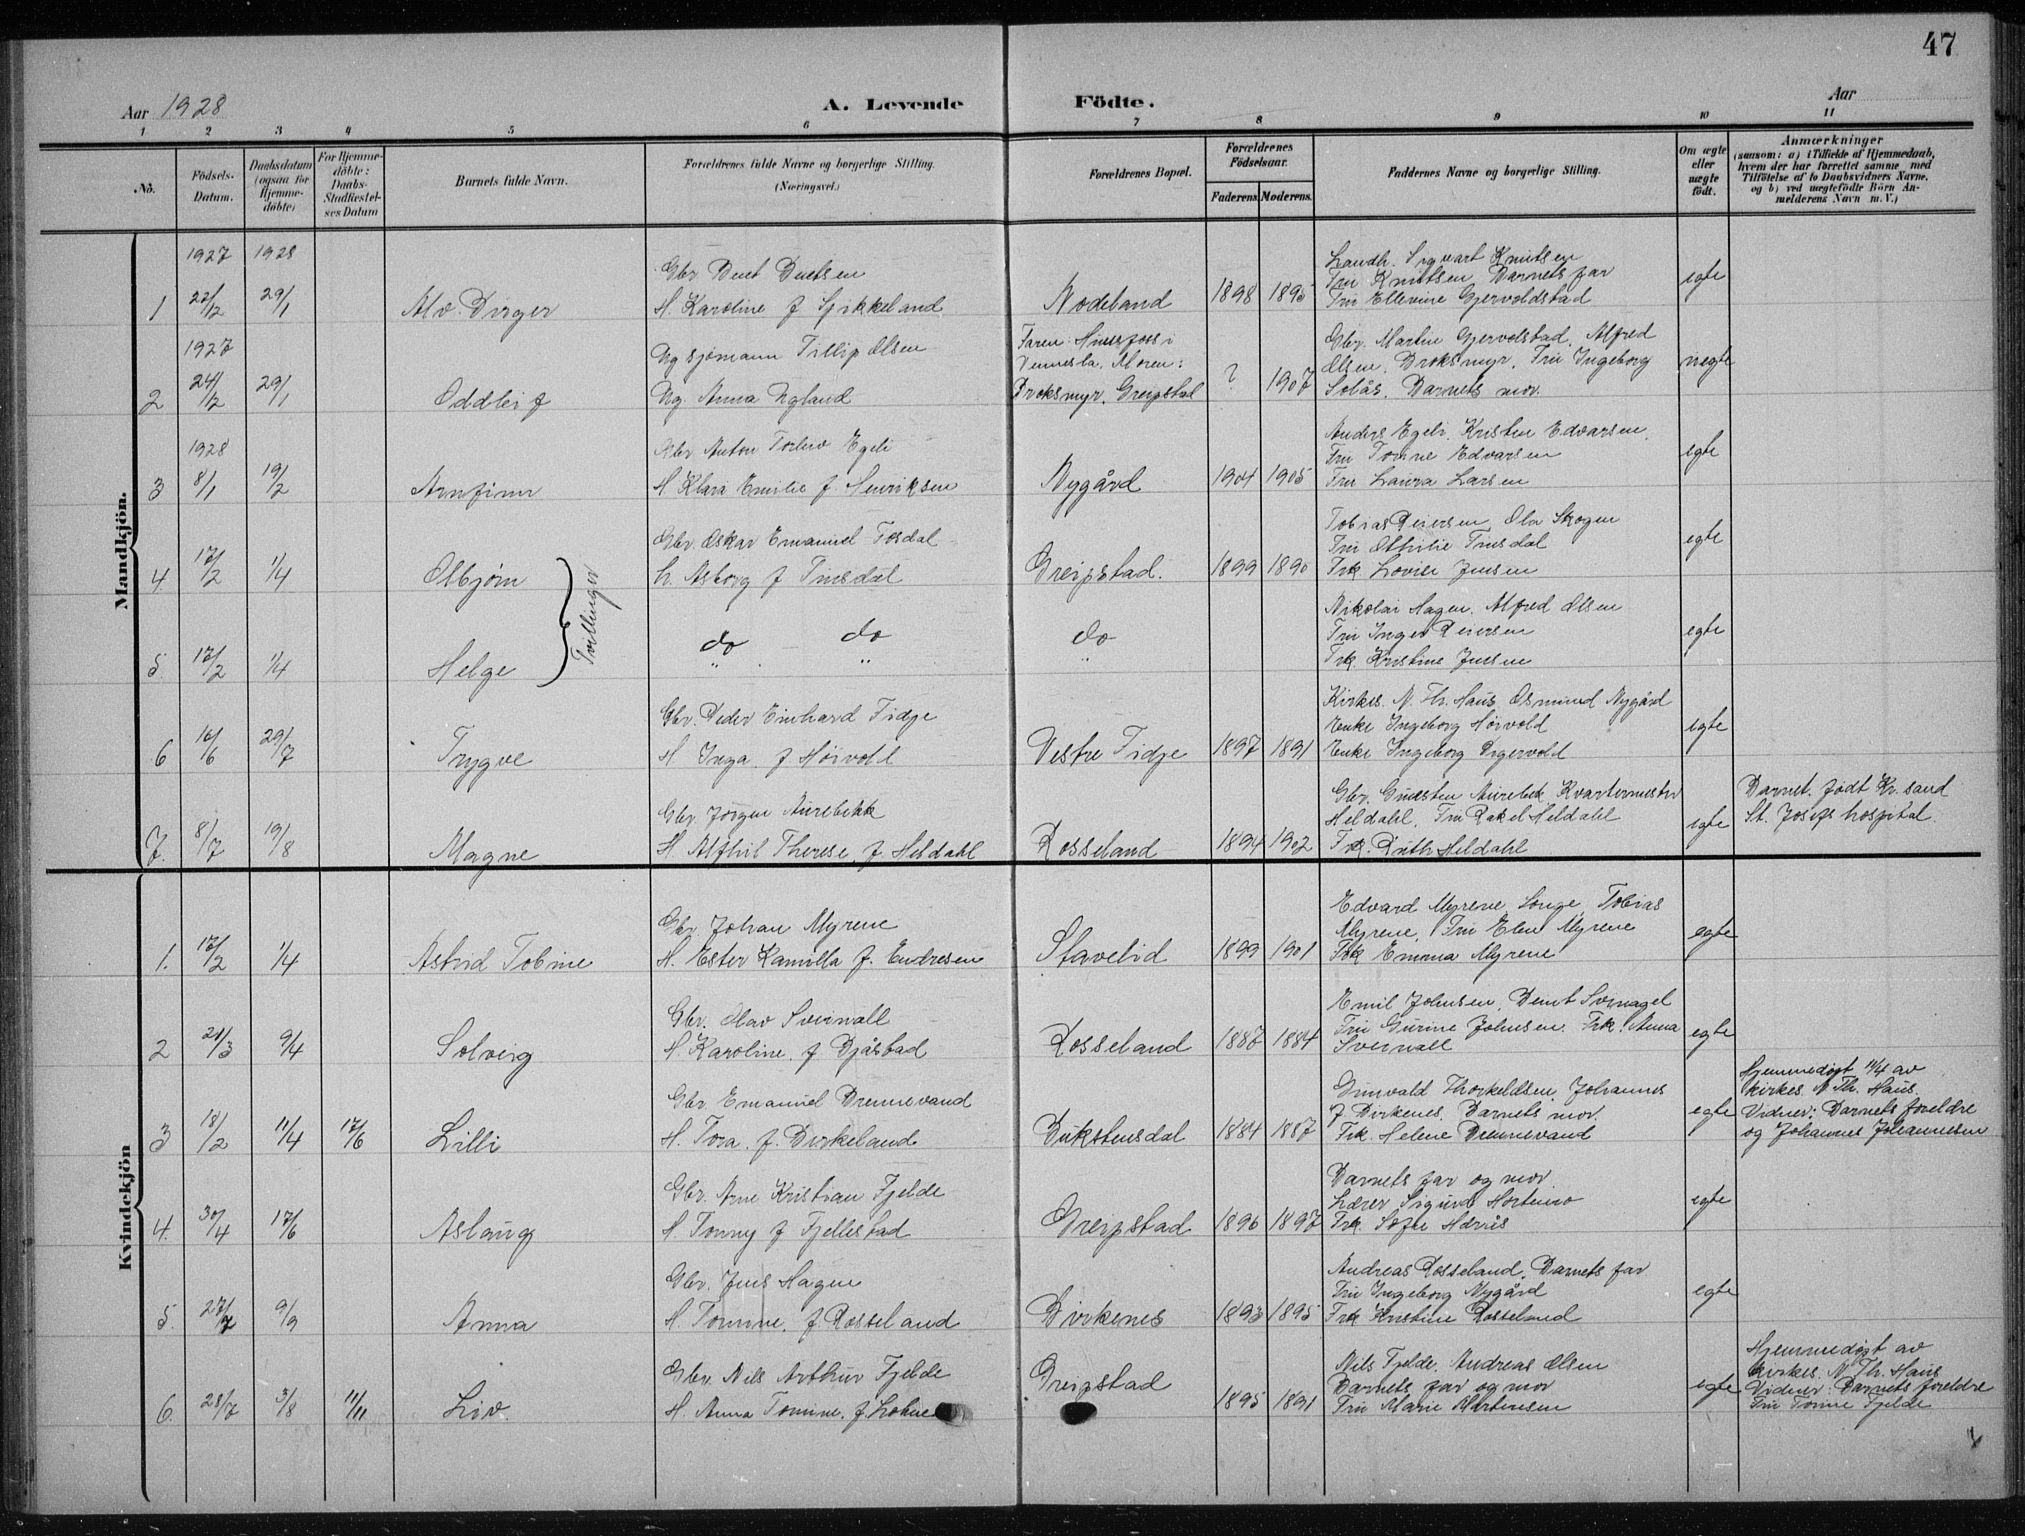 47
Aar 1928
A. Levende
Födte.
Aar
1 2 3 4 5 6 7 8 9 10 11
No.
Födsels-Datum.
Daabsdatum (ogsaa for Hjemme-döbte)
For Hjemme-döbte: Daabs-Stadfæstel-ses Datum
Barnets fulde Navn.
Forældrenes fulde Navne og borgerlige Stilling.
(Næringsvei.)
Forældrenes Bopæl.
Forældrenes Födselsaar.
Faderens Moderens
Faddernes Navne og borgerlige Stilling.
Om ægte eller uægte födt.
Anmærkninger
(saasom: a) i Tilfælde af Hjemmedaab,
hvem der har forrettet samme med
Tilföielse af to Daabsvidners Navne,
og b) ved uægtefödte Börn An-
melderens Navn m. V.)
Mandkjön.
1927 1928
Gbr Bent Bentsen
Landh. Sigvart Knutsen
Fru Knutsen Barnets far
1 22/12 29/1 Alv. Birger H. Karoline f Spikkeland Nodeland 1898 1895 Fru Ellevine Gjervoldstad egte
1927
Ug sjømann Fillip Olsen
Faren: Hunsfoss i
Vennesla. Moren:
Gbr. Martin Gjervolstad, Alfred
Olsen, Broksmyr, Fru Ingeborg
2 24/12 29/1 Oddleif Ug. Anna Ugland Broksmyr, Greipstad ? 1907 Solås, Barnets mor. uegte
1928
Gbr Anton Torleiv Egeli
Anders Egeli. Kristen Edvarsen.
Fru Tomine Edvarsen
3 8/1 19/2 Arnfinn H Klara Emilie f. Henriksen Nygård 1904 1905 Fru Laura Larsen egte
Gbr. Oskar Emanuel Fosdal
Tobias Reiersen, Ola Skogen
Fru Othilie Tinsdal
4. 17/2 1/4 Olbjørn h. Asborg f Tinsdal Greipstad. 1899 1890 Frk. Lovise Jensen egte
Tvillinger
Nikolai Hagen. Alfred Olsen
Fru Inger Reiersen
5. 17/2 1/4 Helge do do do Frk. Kristine Jensen egte
Gbr. Peder Einhard Fidje
Kirkes. N. Th. Haus Osmund Nygård
Enke Ingeborg Hørvold
6 16/6 29/7 Trygve H Inga f Høivoll Vestre Fidje 1897 1891 Enke Ingeborg Digervold egte
Gbr. Jörgen Aurebekk
Gbr. Gunsten Aurebek Kvartermester
Heldahl, Fru Rakel Heldahl
Barnet. født Kr. sand
St. Josefs hospital.
7. 8/7 19/8 Magne H Alfhil Therese f Heldahl Rosseland 1894 1902 Frk. Ruth Heldahl egte
Kvindekjön
Gbr Johan Myrene
Edvard Myrene, Songe, Tobias
Myrene, Fru Elen Myrene
1. 17/2 1/4 Astrid Tobine H. Ester Kamilla f. Endresen Stavelid 1899 1901 Frk Emma Myrene egte
Gbr. Olav Sveinall
Emil Johnsen, Bent Sveinagel
Fru Gurine Johnsen. Frk. Anna
2 21/3 9/4 Solveig H. Karoline. f Bjåstad Rosseland 1887 1884 Sveinall egte
Gbr Emanuel Drennevand
Grunvald Thorkeldsen, Johannes
f Birkenes. Barnets mor
Hjemmedøpt 11/4 av
kirkes. N. Th. Haus.
Vidner: Barnets foreldre
og Johannes Johannesen
3 18/2 11/4 17/6 Lilli H. Tora. f. Birkeland Bukstensdal 1884 1887 Frk. Helene Drennevand egte
Gbr. Arne Kristian Fjelde
Barnets far og mor
Lærer Sigurd Hortemo
4. 30/4 17/6 Aslaug H. Tonny f Fjellestad Greipstad 1896 1897 Frk. Sofie Haus egte
Gbr. Jens Hagen
Andreas Rosseland, Barnets far
Fru Ingeborg Nygård
5. 27/7 9/9 Anna H. Tomine. f. Rosseland Birkenes 1893 1895 Frk Kristine Rosseland egte
Gbr. Nils Arthur Fjelde
Nils Fjelde, Andreas Olsen
Barnets far og mor
Hjemmedøpt av
kirkes. N. Th. Haus
Vidner: Barnets foreldre
Fru Tomine Fjelde
6. 28/7 3/8 11/11 Liv. H. Anna Tomine. f. Lohne Greipstad 1895 1891 Fru Marie Mortensen egte